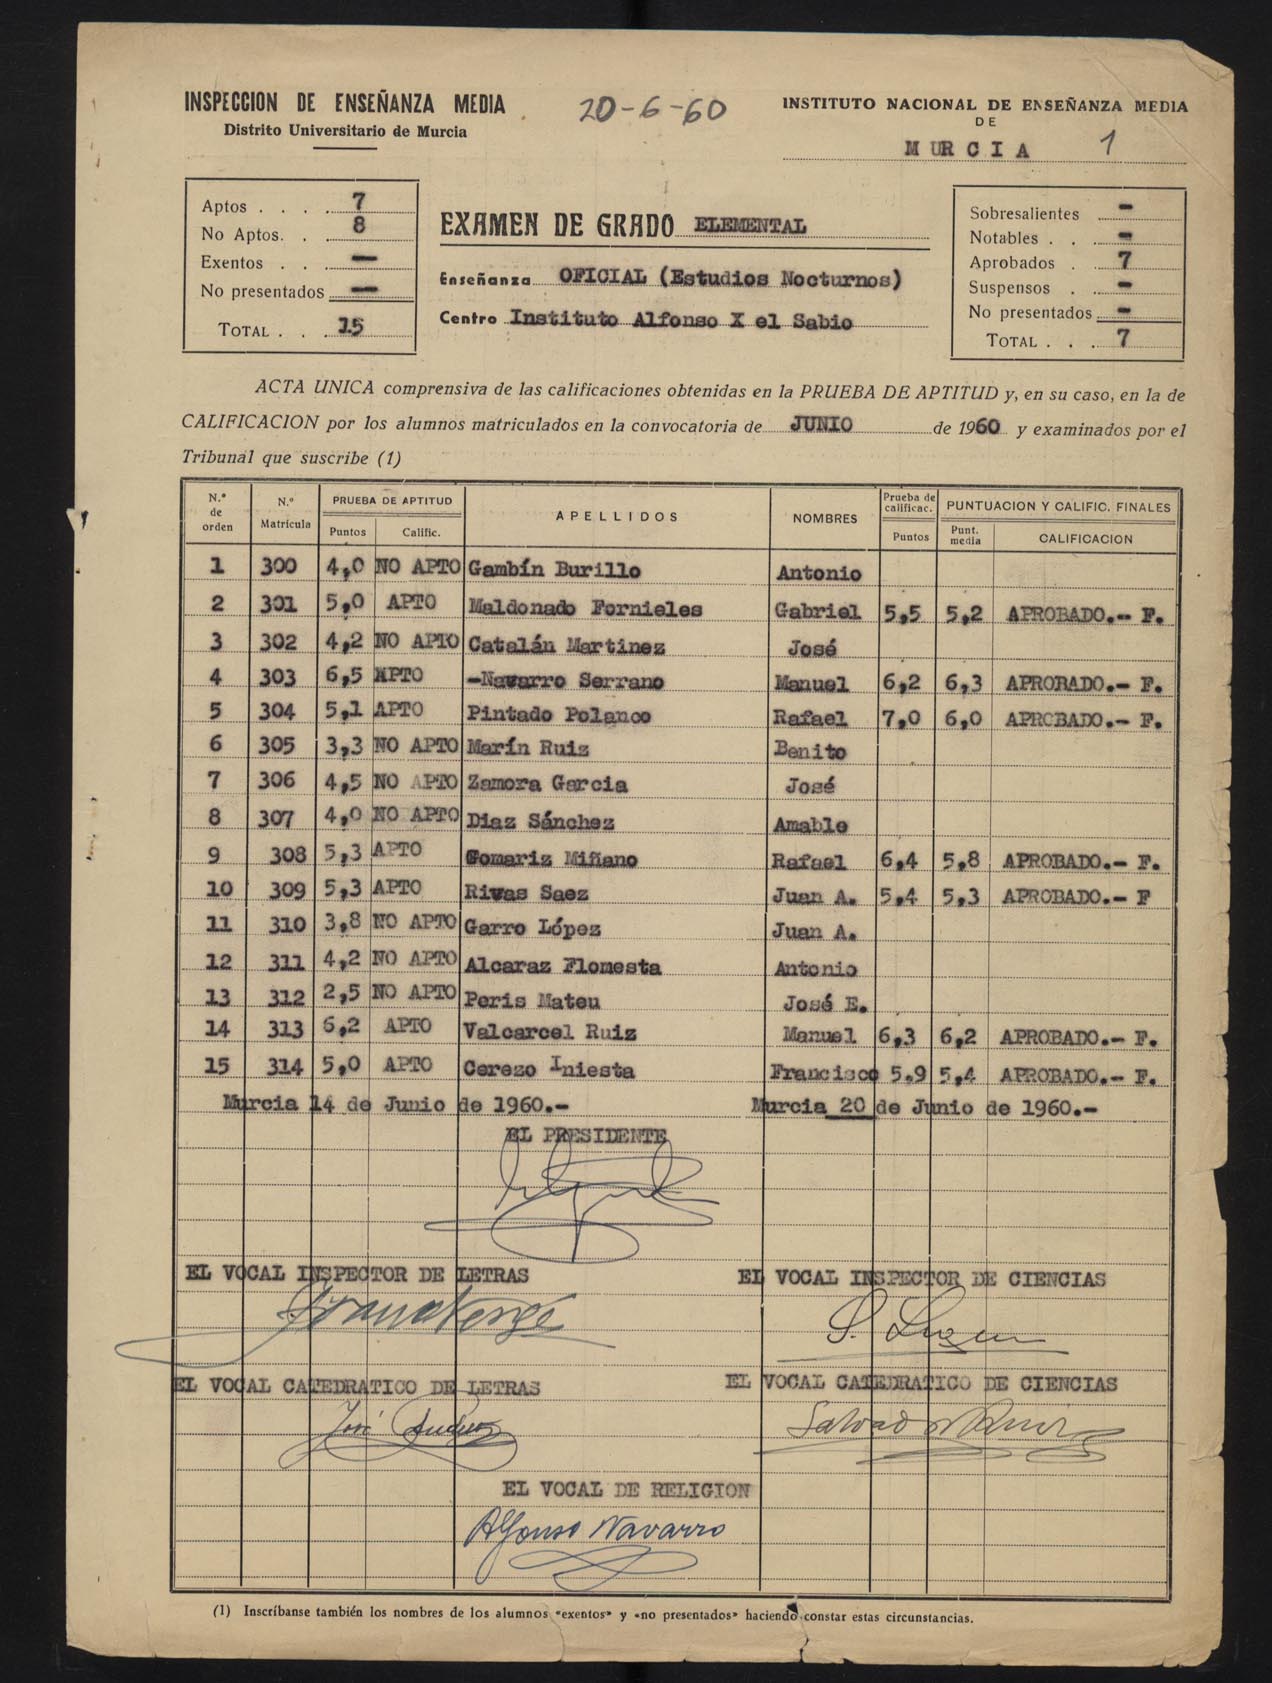 INSPECCION DE ENSEÑANZA MEDIA
Distrito Universitario de Murcia
20-6-60
INSTITUTO NACIONAL DE ENSEÑANZA MEDIA
DE
MURCIA 1
Aptos . . . . 7
No Aptos. . . 8
Exentos . . . —
No presentados —
TOTAL . . . 15
EXAMEN DE GRADO ELEMENTAL
Enseñanza OFICIAL (Estudios Nocturnos)
Centro Instituto Alfonso X el Sabio
Sobresalientes -
Notables . . . -
Aprobados . 7
Suspensos . -
No presentados -
TOTAL . . . 7
ACTA UNICA comprensiva de las calificaciones obtenidas en la PRUEBA DE APTITUD y, en su caso, en la de
CALIFICACION por los alumnos matriculados en la convocatoria de JUNIO de 1960 y examinados por el
Tribunal que suscribe (1)
N.º de orden | N.º Matrícula | PRUEBA DE APTITUD Puntos | Calific. | APELLIDOS | NOMBRES | Prueba de calificac. Puntos | PUNTUACION Y CALIFIC. FINALES Punt. media | CALIFICACION
1 300 4,0 NO APTO Gambín Burillo Antonio
2 301 5,0 APTO Maldonado Fornieles Gabriel 5,5 5,2 APROBADO.-- F.
3 302 4,2 NO APTO Catalán Martinez José
4 303 6,5 APTO -Navarro Serrano Manuel 6,2 6,3 APROBADO.- F.
5 304 5,1 APTO Pintado Polanco Rafael 7,0 6,0 APROBADO.- F.
6 305 3,3 NO APTO Marín Ruiz Benito
7 306 4,5 NO APTO Zamora Garcia José
8 307 4,0 NO APTO Diaz Sánchez Amable
9 308 5,3 APTO Gomariz Miñano Rafael 6,4 5,8 APROBADO.- F.
10 309 5,3 APTO Rivas Saez Juan A. 5,4 5,3 APROBADO.- F
11 310 3,8 NO APTO Garro López Juan A.
12 311 4,2 NO APTO Alcaraz Flomesta Antonio
13 312 2,5 NO APTO Peris Mateu José E.
14 313 6,2 APTO Valcarcel Ruiz Manuel 6,3 6,2 APROBADO.- F.
15 314 5,0 APTO Cerezo Iniesta Francisco 5.9 5,4 APROBADO.- F.
Murcia 14 de Junio de 1960.- Murcia 20 de Junio de 1960.-
EL PRESIDENTE
EL VOCAL INSPECTOR DE LETRAS EL VOCAL INSPECTOR DE CIENCIAS
EL VOCAL CATEDRATICO DE LETRAS EL VOCAL CATEDRATICO DE CIENCIAS
José
EL VOCAL DE RELIGION
Alfonso Navarro
(1) Inscríbanse también los nombres de los alumnos «exentos» y «no presentados» haciendo constar estas circunstancias.